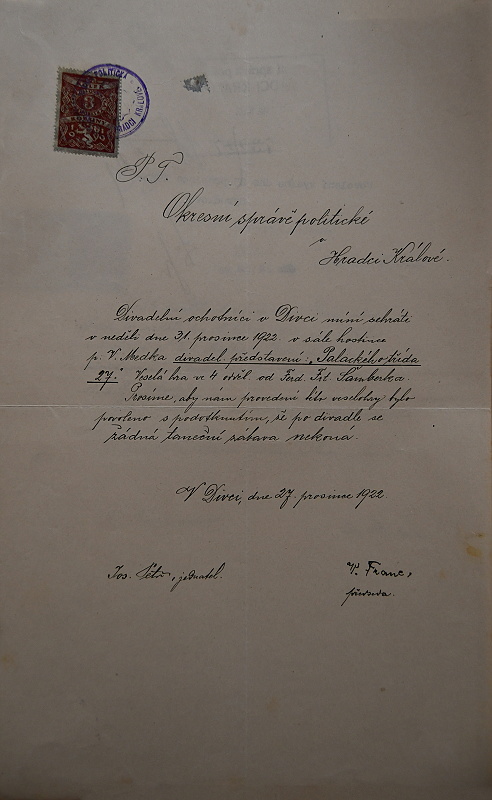 POLITICKÁ
HRADCI KRÁLOVÉ
P. T.
Okresní správě politické
v
Hradci Králové.
Divadelní ochotníci v Divci míní sehráti
v neděli dne 31. prosince 1922 v sále hostince
p. V. Medka divadel. představení: „Palackého třída
27." Veselá hra ve 4 odděl. od Ferd. Frt. Šamberka.
Prosíme, aby nám provedení této veselohry bylo
povoleno s podotknutím, že po divadle se
žádná taneční zábava nekoná.
V Divci, dne 27. prosince 1922.
Jos. Petr, jednatel.
V. Franc,
předseda.